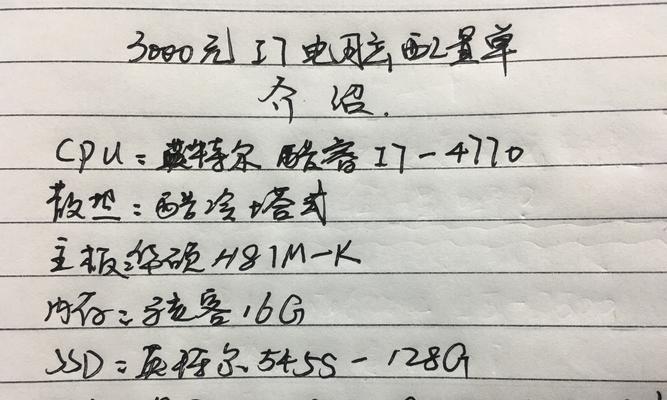 3000元I7电脑配置单
介绍.
CPU:英特尔 酷睿I7-4770
散热:酷冷塔式
主板:华硕H81M-K
内存:骇客16G
SSD:英特尔545S-128G